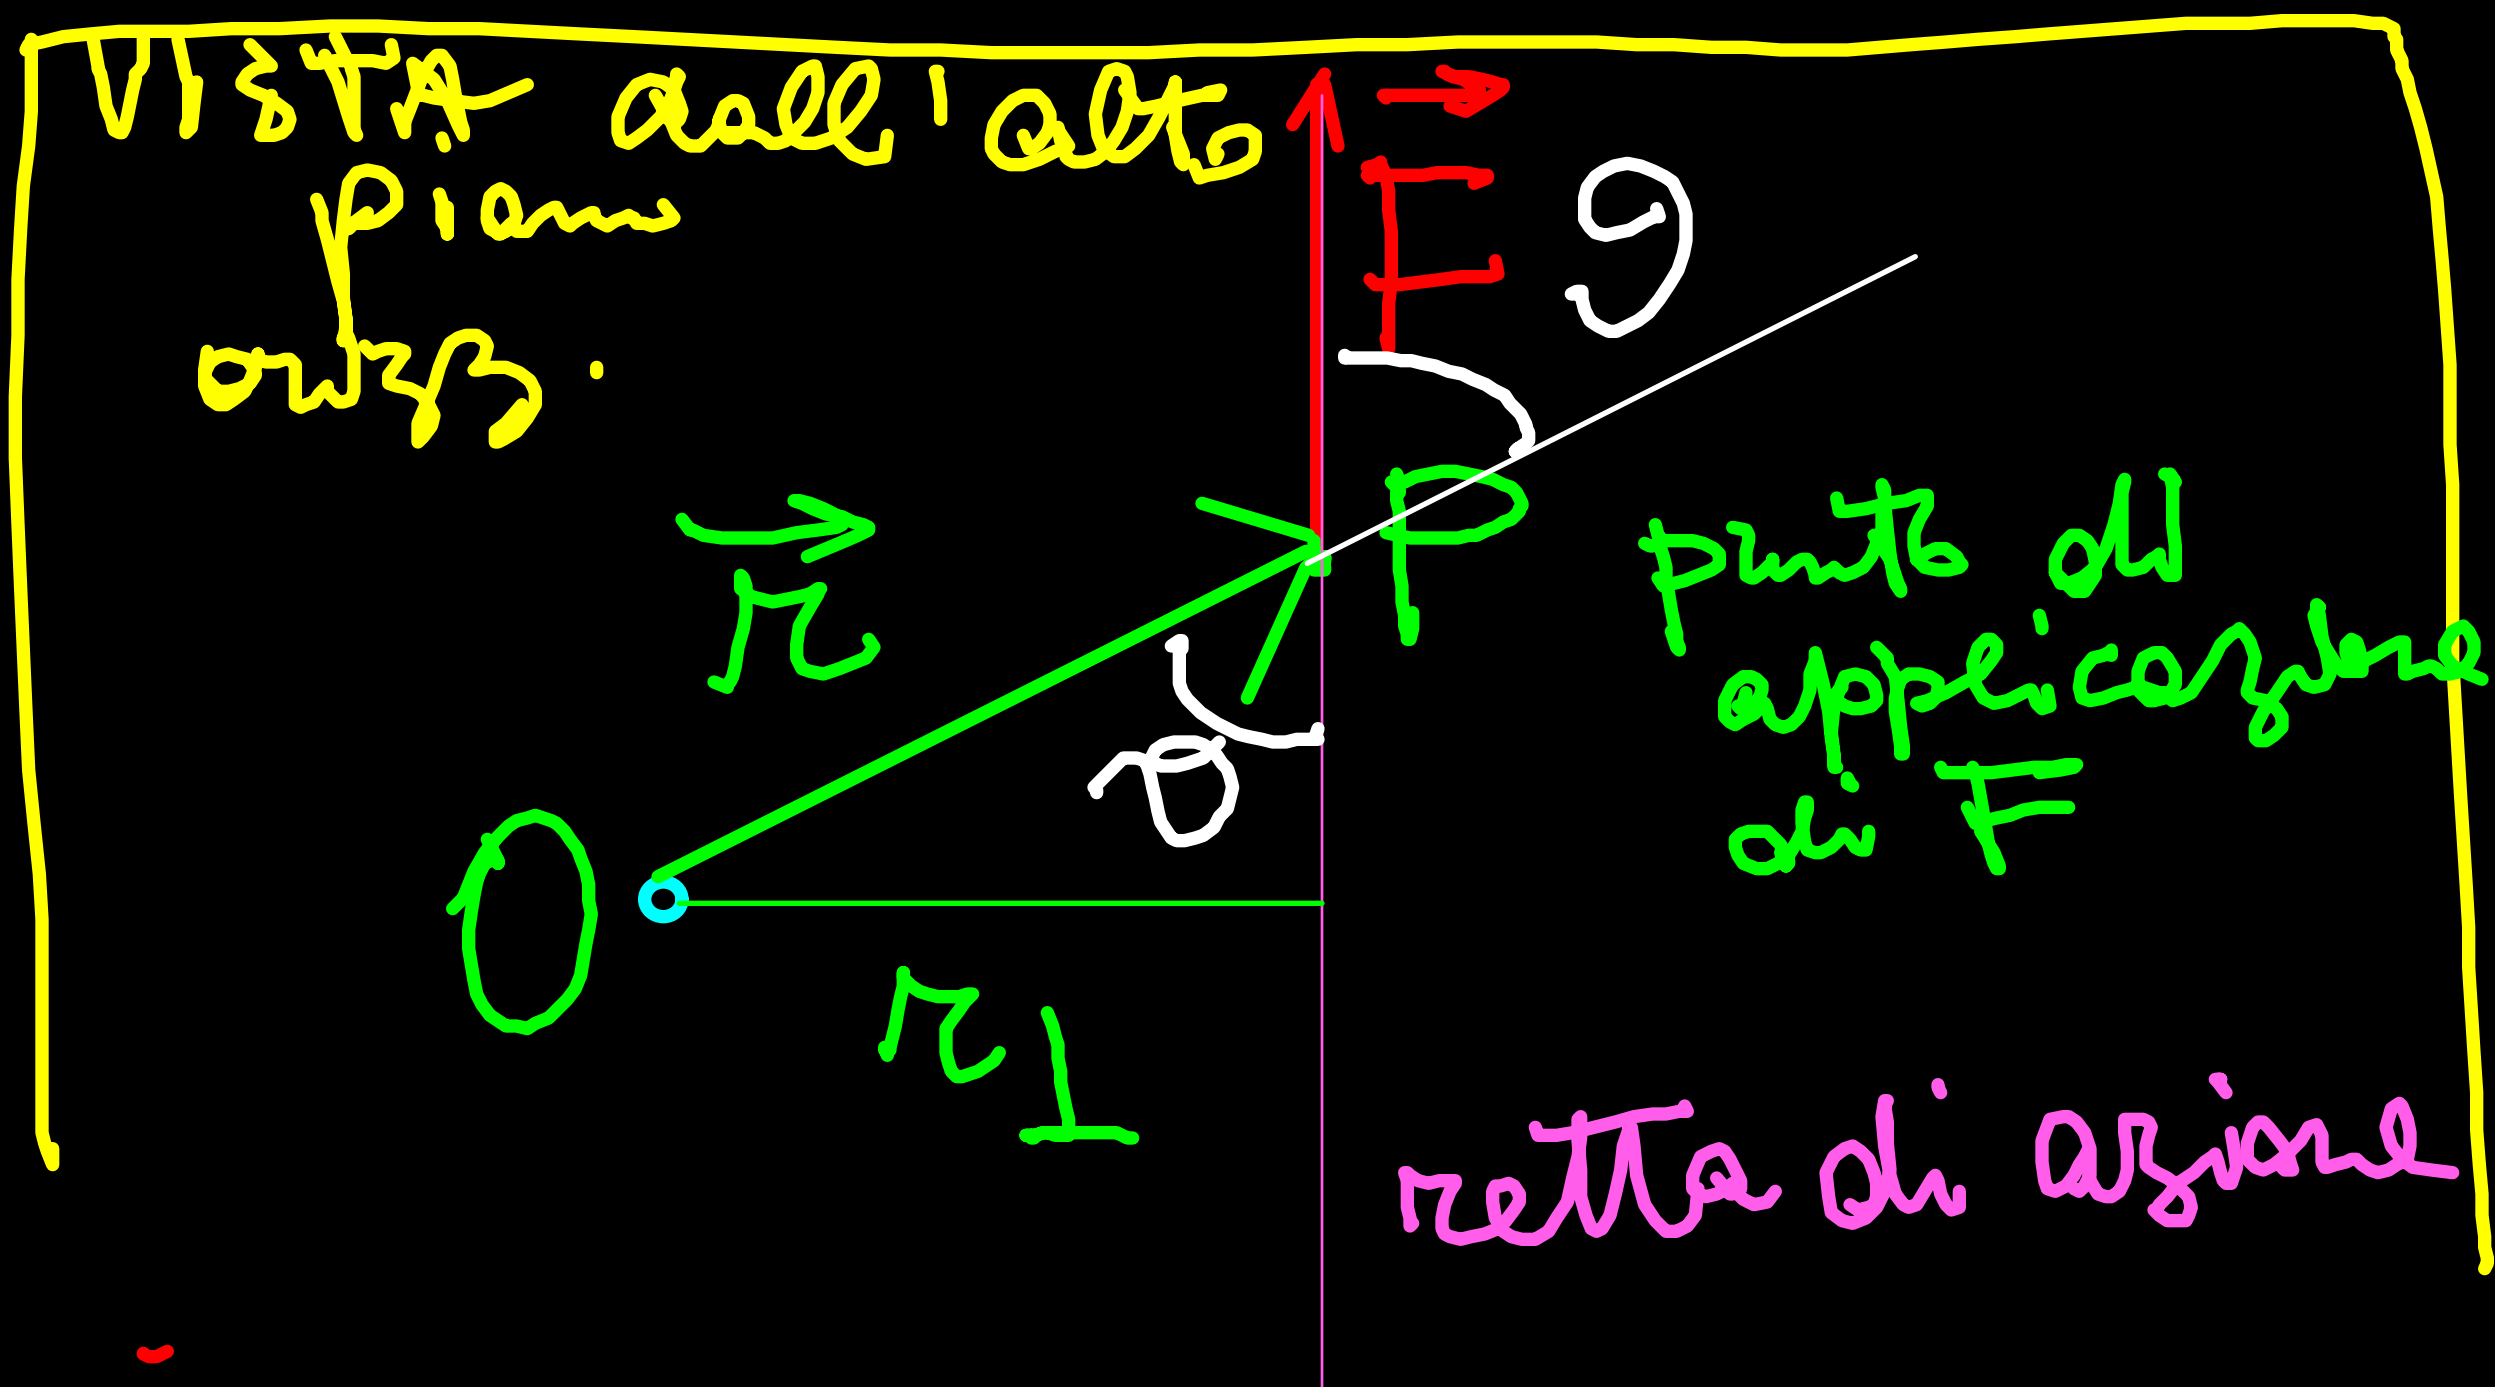 VISTA dall'alto
piano
orizz.
F
θ
r
P
punto di
applicazione
di F
θ
O
r1
retta di azione